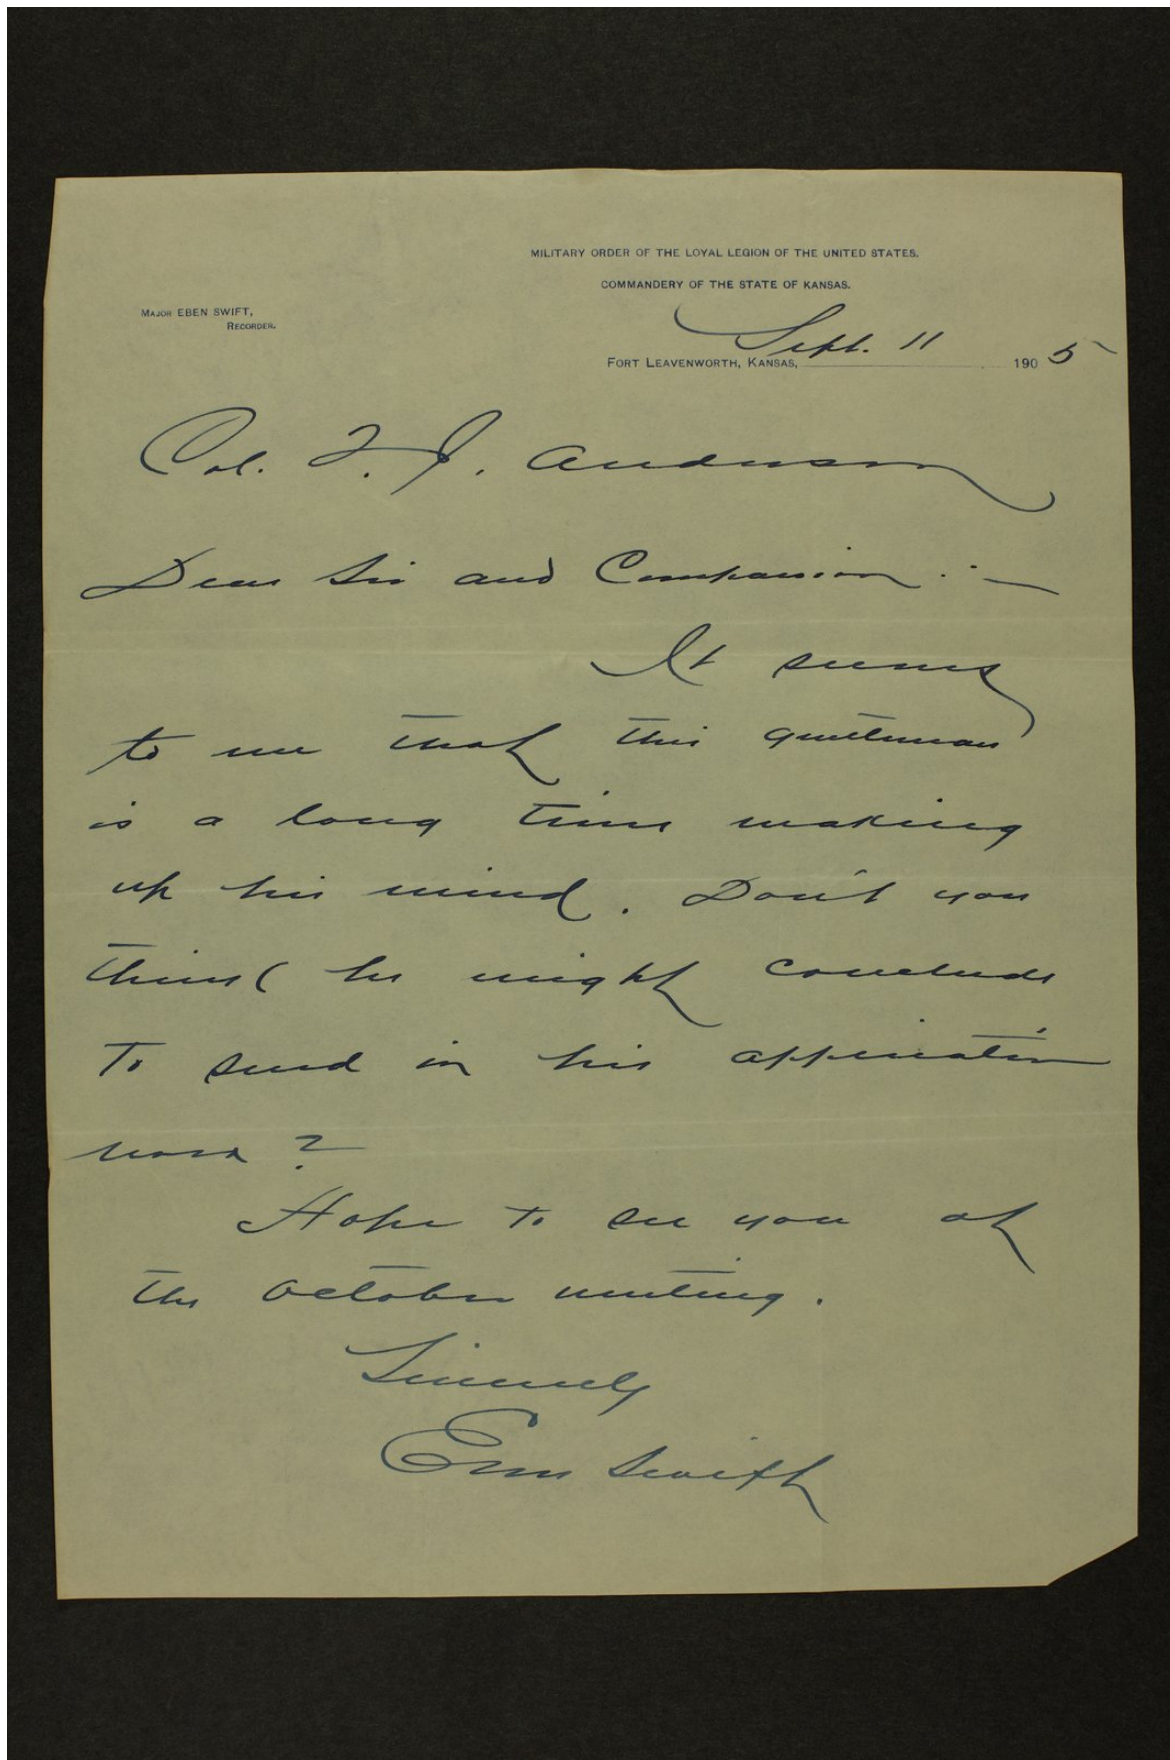 MILITARY ORDER OF THE LOYAL LEGION OF THE UNITED STATES.
COMMANDERY OF THE STATE OF KANSAS.
MAJOR EBEN SWIFT,
RECORDER.
FORT LEAVENWORTH, KANSAS, Sept. 11 1905
Col. T. J. Anderson
Dear Sir and Companion :—
It seems
to me that this gentleman
is a long time making
up his mind. Don't you
think he might conclude
to send in his application
now?
Hope to see you at
the October meeting.
Sincerely
Eben Swift